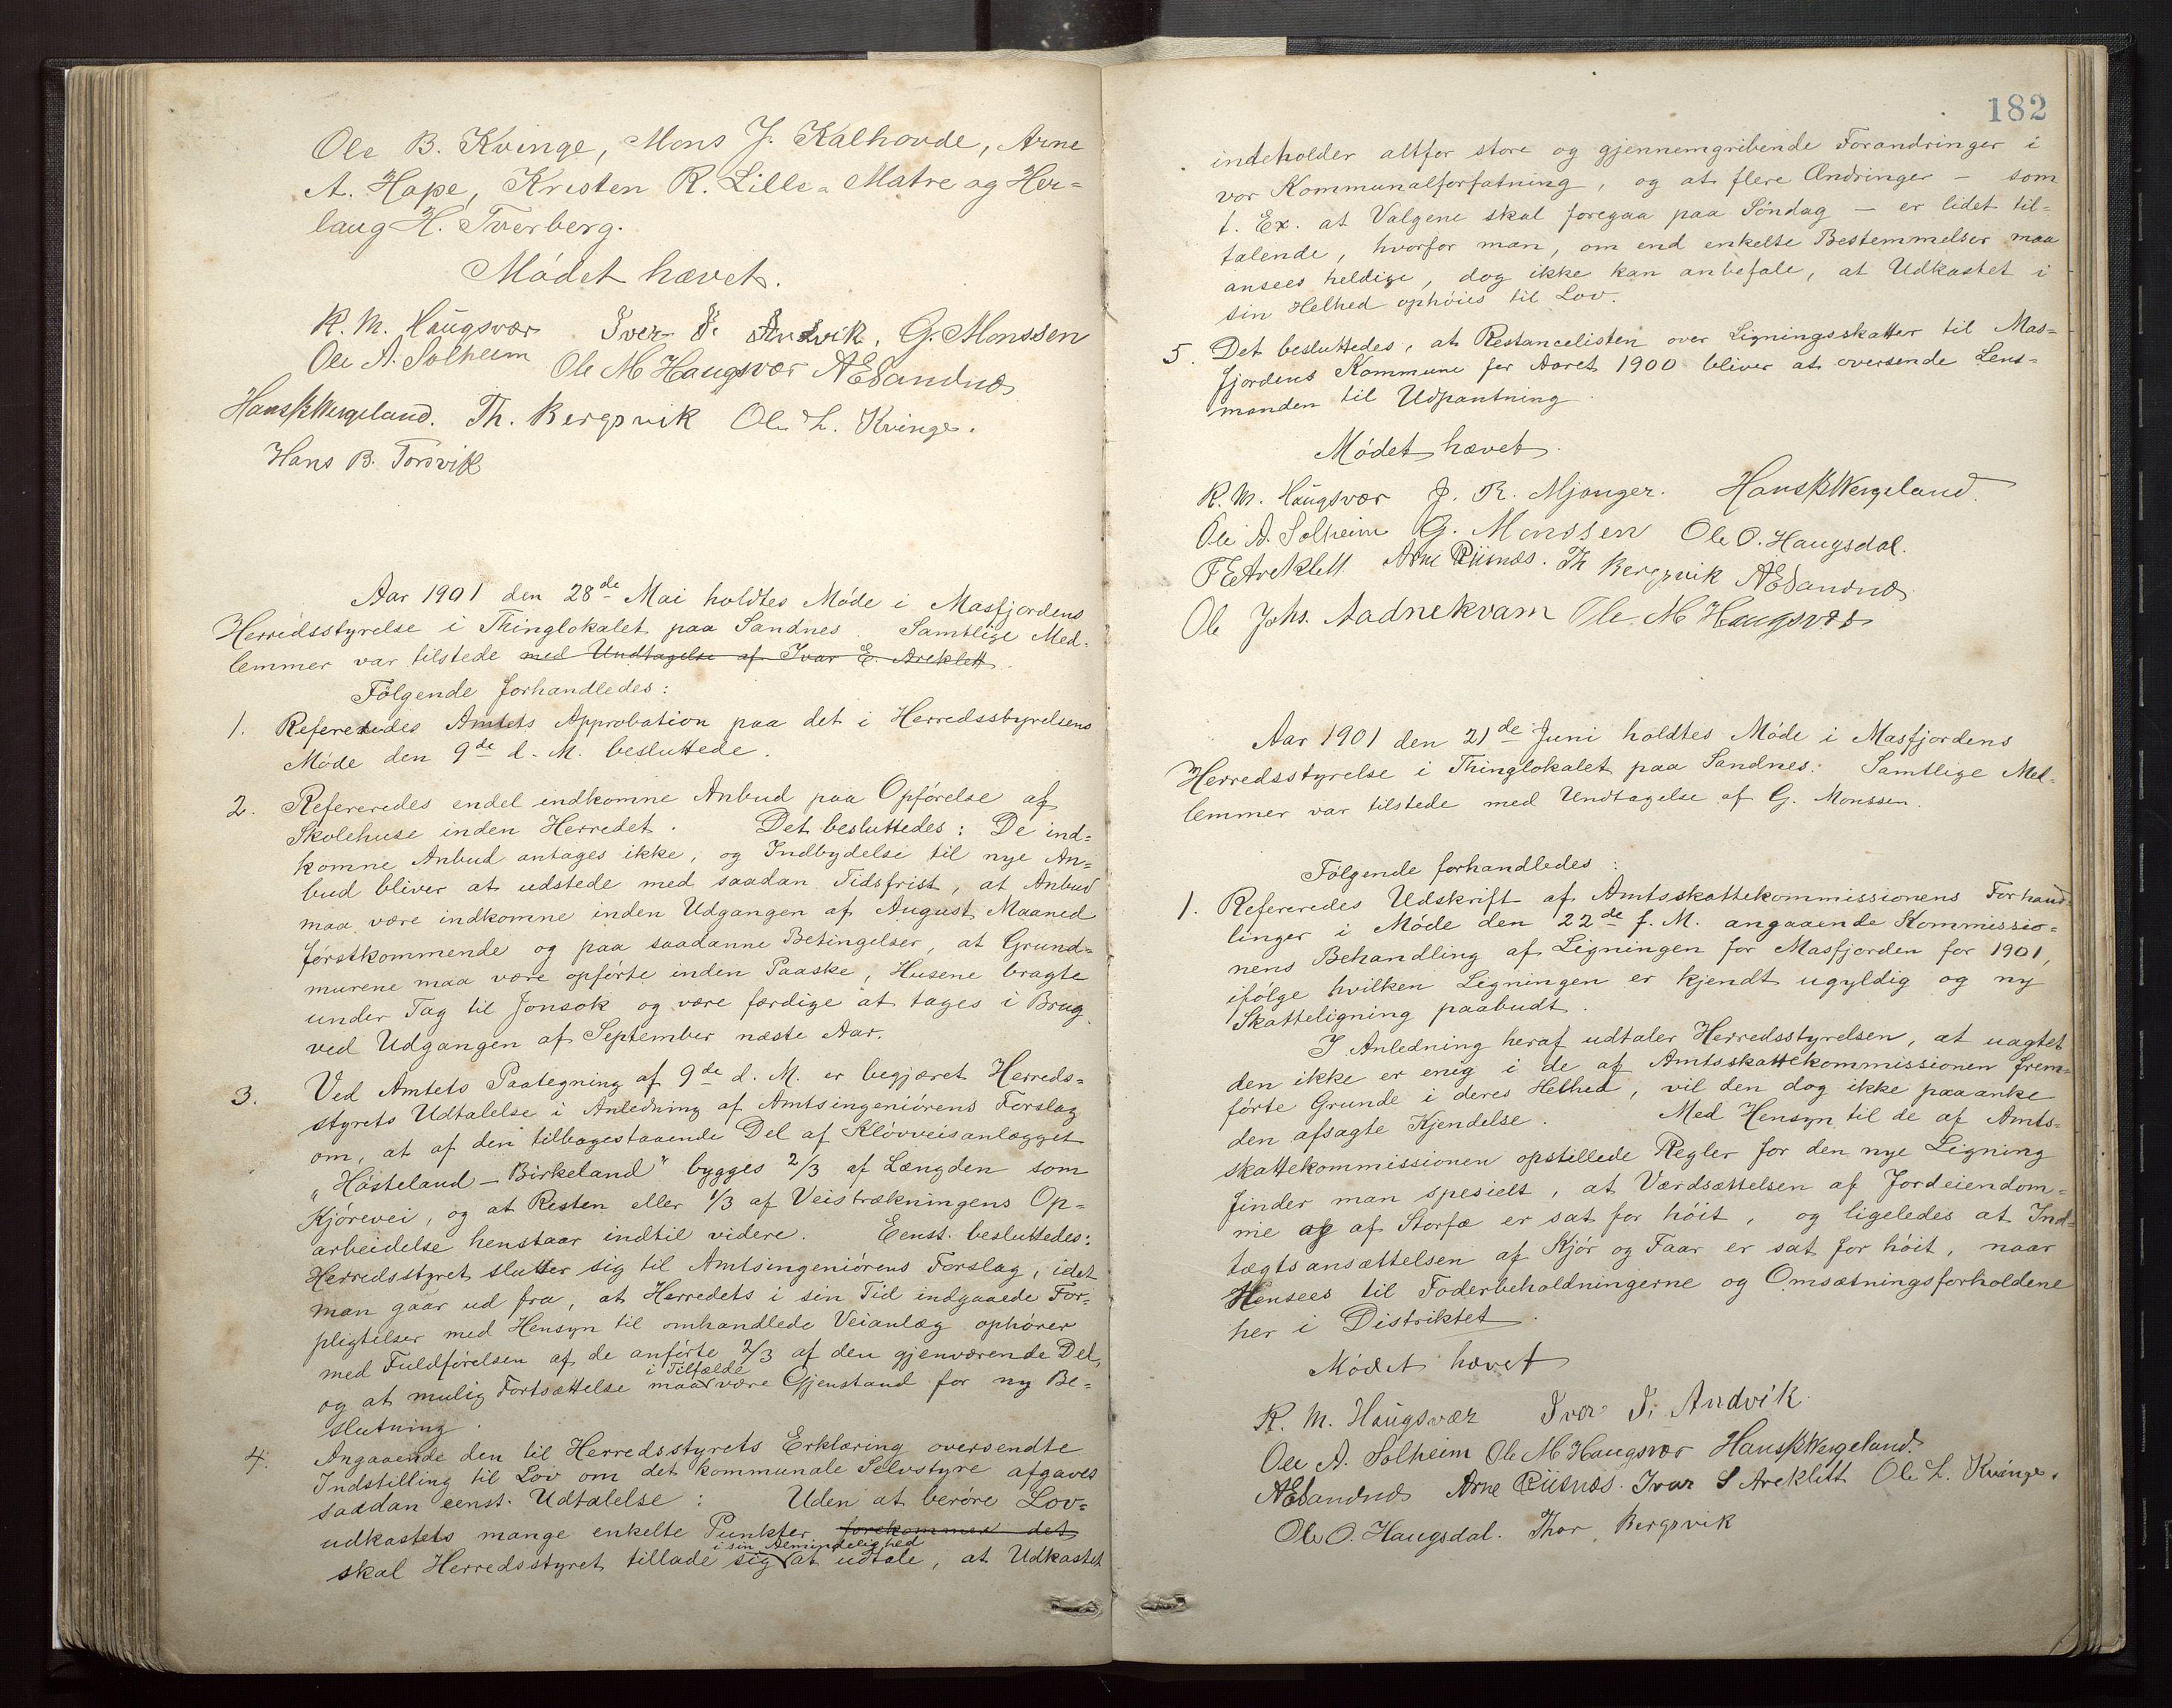 Ole B. Kvinge, Mons J. Kalhovde, Arne
A. Hope, Kristen R. Lille-Matre og Her=
laug H. Tverberg.
Mødet hævet.
R. M. Haugsvær Iver I. Andvik, G. Monssen
Ole A. Solheim Ole M Haugsvær AESandnæs
Hans B Wergeland. Th. Bergsvik Ole L. Kvinge.
Hans B. Torsvik
Aar 1901 den 28de Mai holdtes Møde i Masfjordens
Herredsstyrelse i Thinglokalet paa Sandnes. Samtlige Med-
lemmer var tilstede med Undtagelse af Ivar E. Areklett.
Følgende forhandledes:
1. Refereredes Amtets Approbation paa det i Herredsstyrelsens
Møde den 9de d. M. besluttede.
2. Refereredes endel indkomne Anbud paa Opførelse af
Skolehuse inden Herredet. Det besluttedes: De ind=
komne Anbud antages ikke, og Indbydelse til nye An=
bud bliver at udstede med saadan Tidsfrist, at Anbud
maa være indkomne inden Udgangen af August Maaned
førstkommende og paa saadanne Betingelser, at Grund=
murene maa være opførte inden Paaske, Husene bragte
under Tag til Jonsok og være færdige at tages i Brug
ved Udgangen af September næste Aar.
3. Ved Amtets Paategning af 9de d. M. er begjæret Herreds=
styrets Udtalelse i Anledning af Amtsingeniørens Forslag
om, at af den tilbagestaaende Del af Kløvveisanlægget
"Høsteland - Birkeland" bygges 2/3 af Længden som
Kjørevei, og at Resten eller 1/3 af Veistrækningens Op=
arbeidelse henstaar indtil videre. Eenst. besluttedes:
Herredsstyret slutter sig til Amtsingeniørens Forslag, idet
man gaar ud fra, at Herredets i sin Tid indgaaede For=
pligtelser med Hensyn til omhandlede Veianlæg ophører
med Fuldførelsen af de anførte 2/3 af den gjenværende Del,
og at mulig Fortsættelse maa i Tilfælde være Gjenstand for ny Be=
slutning.
4. Angaaende den til Herredsstyrets Erklæring oversendte
Indstilling til Lov om det kommunale Selvstyre afgaves
saadan eenst. Udtalelse: Uden at berøre Lov=
udkastets mange enkelte Punkter forekommer det
skal Herredsstyret tillade sig i sin Almindelighed at udtale, at Udkastet
182
indeholder altfor store og gjennemgribende Forandringer i
vor Kommunalforfatning, og at flere Ændringer - som
t. Ex. at Valgene skal foregaa paa Søndag - er lidet til=
talende, hvorfor man, om end enkelte Bestemmelser maa
ansees heldige, dog ikke kan anbefale, at Udkastet i
sin Helhed ophøies til Lov.
5. Det besluttedes, at Restancelisten over Ligningsskatter til Mas=
fjordens Kommune for Aaret 1900 bliver at oversende Lens=
manden til Udpantning.
Mødet hævet.
R. M. Haugsvær J. R. Mjanger. Hans B Wergeland.
Ole A. Solheim G. Monssen Ole O. Haugsdal.
Areklett Arne Riisnæs. Th Bergsvik AESandnæs
Ole Johs. Aadnekvam Ole M Haugsvær
Aar 1901 den 21de Juni holdtes Møde i Masfjordens
Herredsstyrelse i Thinglokalet paa Sandnes. Samtlige Med-
lemmer var tilstede med Undtagelse af G. Monssen.
Følgende forhandledes:
1. Refereredes Udskrift af Amtsskattekommissionens Forhand=
linger i Møde den 22de f. M. angaaende Kommissio=
nens Behandling af Ligningen for Masfjorden for 1901,
ifølge hvilken Ligningen er kjendt ugyldig og ny
Skatteligning paabudt.
I Anledning heraf udtaler Herredsstyrelsen, at uagtet
den ikke er enig i de af Amtsskattekommissionen frem=
førte Grunde i deres Helhed, vil den dog ikke paaanke
den afsagte Kjendelse. Med Hensyn til de af Amts=
skattekommissionen opstillede Regler for den nye Ligning
finder man spesielt, at Værdsættelsen af Jordeiendom=
me og af Storfæ er sat for høit, og ligeledes at Ind=
tægtsansættelsen af Kjør og Faar er sat for høit, naar
Hensees til Foderbeholdningerne og Omsætningsforholdene
her i Distriktet.
Mødet hævet
R. M. Haugsvær Iver I. Andvik
Ole A. Solheim Ole M Haugsvær Hans B Wergeland.
AESandnæs Arne Riisnæs. Ivar E Areklett Ole L. Kvinge.
Ole O. Haugsdal. Thor Bergsvik